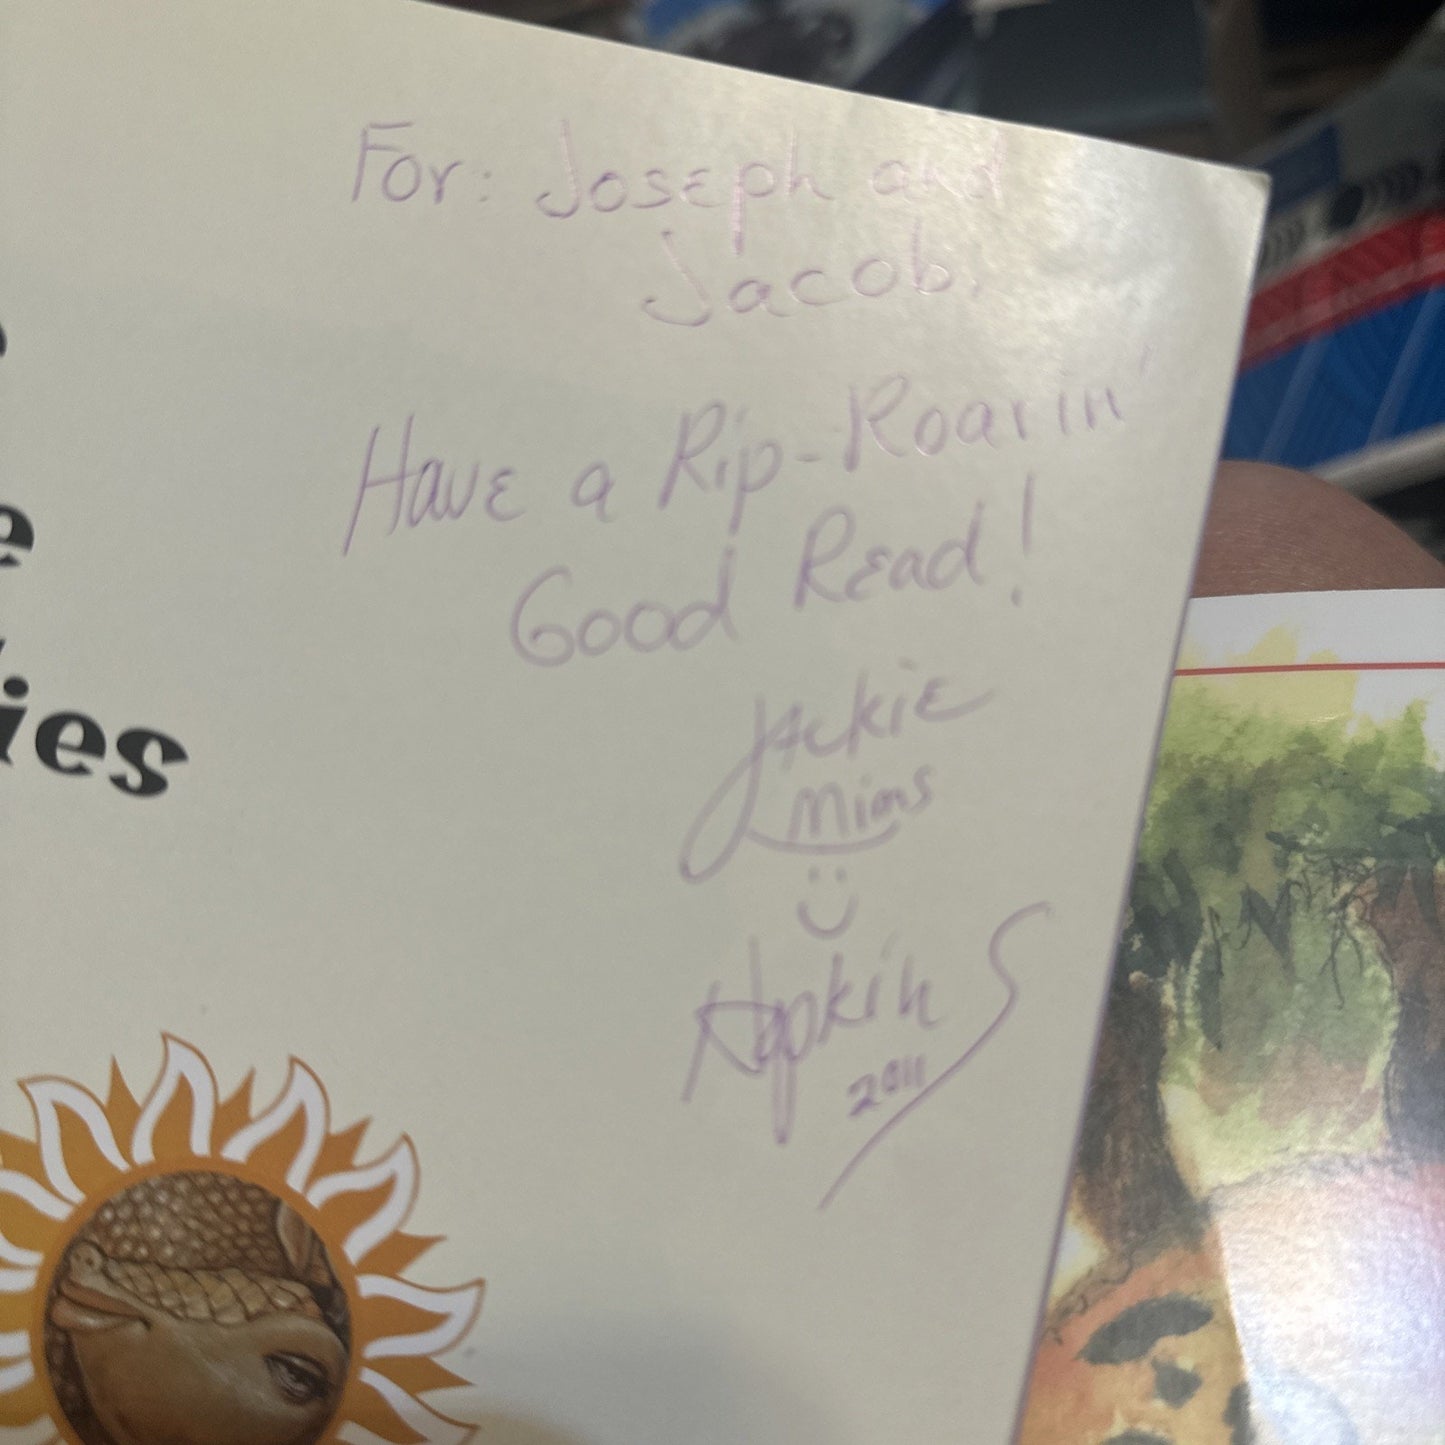 For: Joseph and
Jacob,
Have a Rip-Roarin'
Good Read!
Jackie
Mims
Hopkins
2011
ies